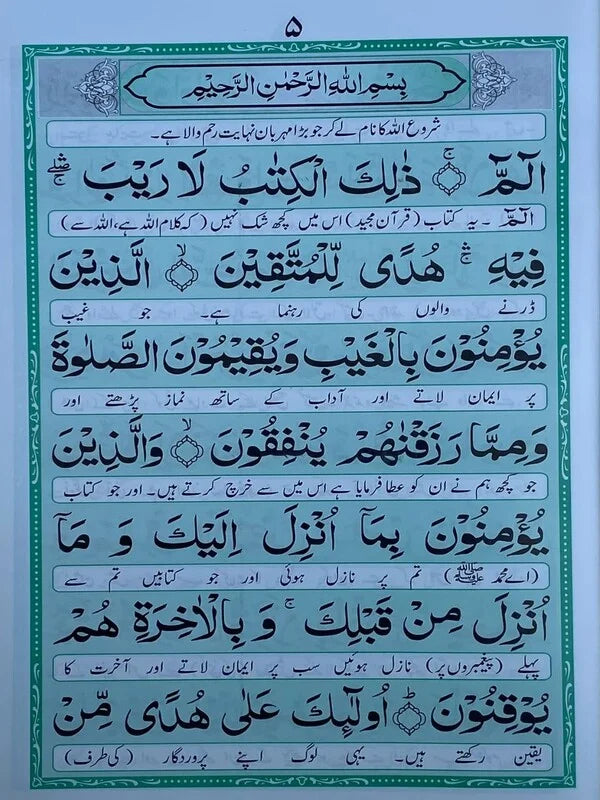 ۵
بِسْمِ اللهِ الرَّحْمٰنِ الرَّحِيْمِ
شروع اللہ کا نام لے کر جو بڑا مہربان نہایت رحم والا ہے۔
الٓمّٓ ۚ ذٰلِكَ الْكِتٰبُ لَا رَيْبَ ۛۖۚ
الٓمّٓ ۔ یہ کتاب (قرآن مجید) اس میں کچھ شک نہیں (کہ کلام اللہ ہے، اللہ سے)
فِيْهِ ۛۚ هُدًى لِّلْمُتَّقِيْنَ ۙ الَّذِيْنَ
ڈرنے والوں کی رہنما ہے۔ جو غیب
يُؤْمِنُوْنَ بِالْغَيْبِ وَيُقِيْمُوْنَ الصَّلٰوةَ
پر ایمان لاتے اور آداب کے ساتھ نماز پڑھتے اور
وَمِمَّا رَزَقْنٰهُمْ يُنْفِقُوْنَ ۙ وَالَّذِيْنَ
جو کچھ ہم نے ان کو عطا فرمایا ہے اس میں سے خرچ کرتے ہیں۔ اور جو کتاب
يُؤْمِنُوْنَ بِمَآ اُنْزِلَ اِلَيْكَ وَ مَآ
(اے محمد ﷺ) تم پر نازل ہوئی اور جو کتابیں تم سے
اُنْزِلَ مِنْ قَبْلِكَ ۚ وَ بِالْاٰخِرَةِ هُمْ
پہلے (پیغمبروں پر) نازل ہوئیں سب پر ایمان لاتے اور آخرت کا
يُوْقِنُوْنَ ؕ اُولٰٓئِكَ عَلٰى هُدًى مِّنْ
یقین رکھتے ہیں۔ یہی لوگ اپنے پروردگار (کی طرف)